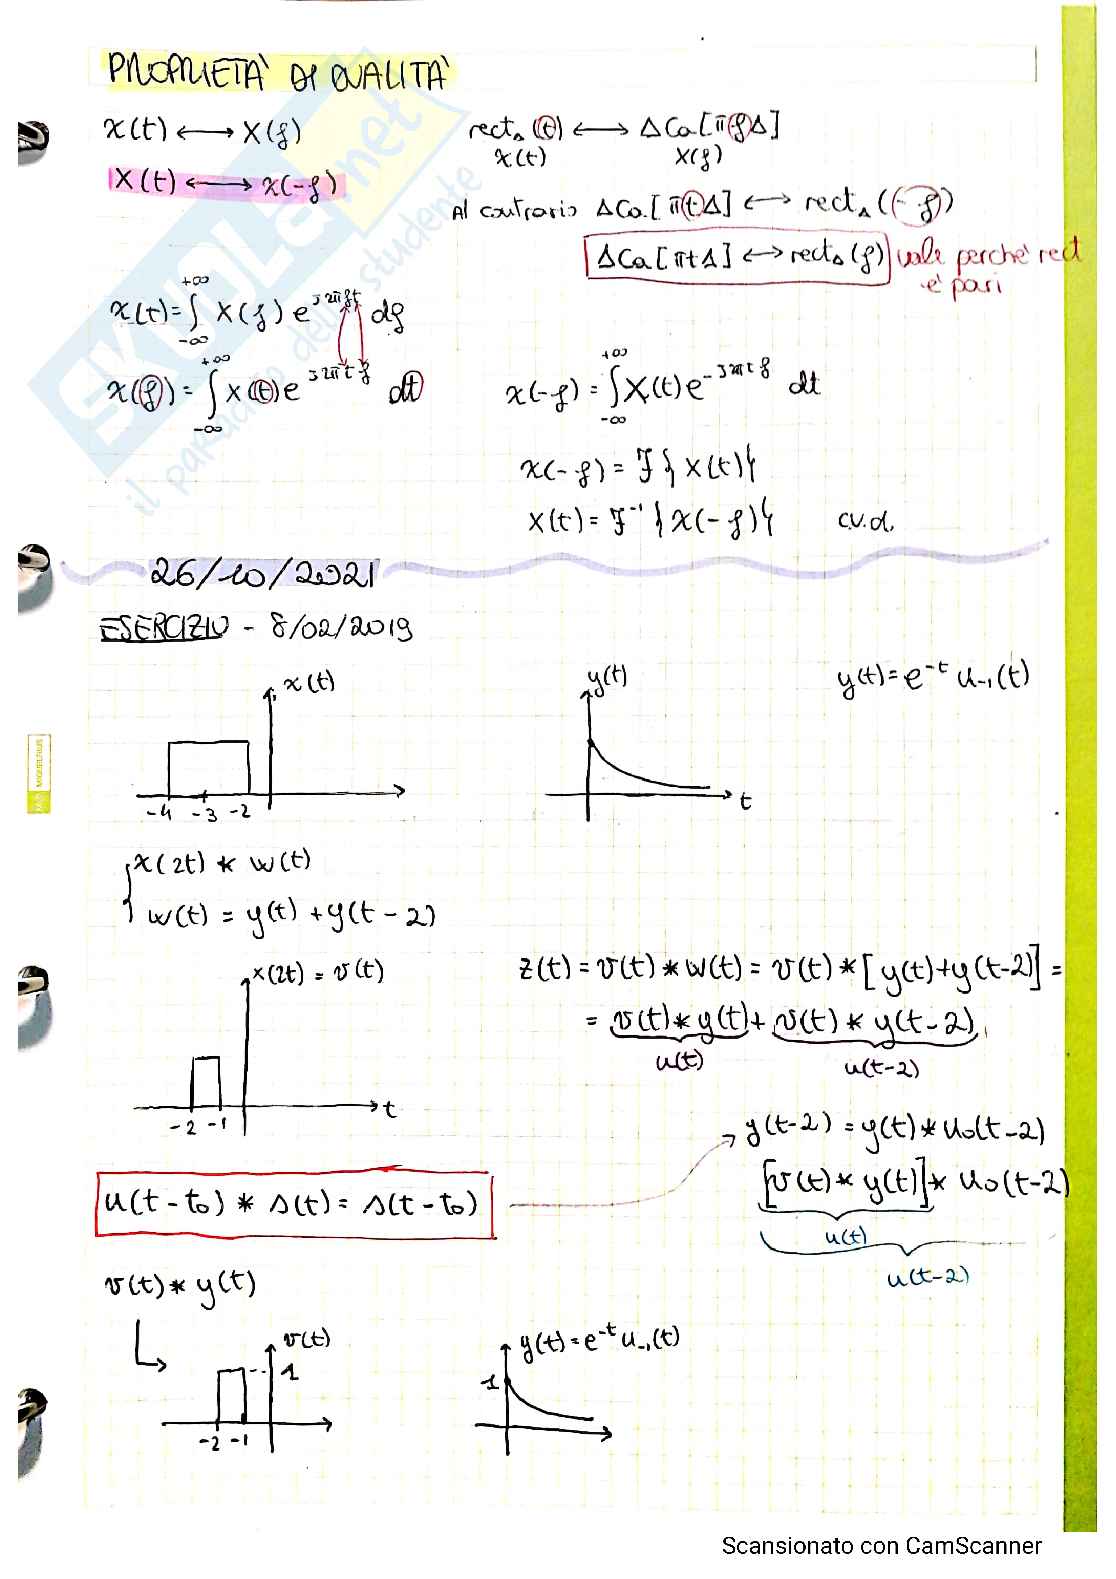 PROPRIETA' DI DUALITA'
x(t) ⟷ X(f)
X(t) ⟷ x(-f)
rect_Δ(t) ⟷ ΔCa[πfΔ]
x(t) X(f)
Al contrario ΔCa[πtΔ] ⟷ rect_Δ(-f)
ΔCa[πtΔ] ⟷ rect_Δ(f) vale perchè rect
è pari
x(t) = ∫_{-∞}^{+∞} X(f) e^{j2πft} df
x(f) = ∫_{-∞}^{+∞} X(t) e^{j2πtf} dt
x(-f) = ∫_{-∞}^{+∞} X(t) e^{-j2πtf} dt
x(-f) = F{X(t)}
X(t) = F^{-1}{x(-f)} c.v.d.
26/10/2021
ESERCIZIO - 8/02/2019
x(t)
-4 -3 -2
y(t)
t
y(t) = e^{-t} u_{-1}(t)
x(2t) * w(t)
w(t) = y(t) + y(t-2)
x(2t) = v(t)
-2 -1 t
z(t) = v(t) * w(t) = v(t) * [y(t)+y(t-2)] =
= v(t) * y(t) + v(t) * y(t-2)
u(t) u(t-2)
y(t-2) = y(t) * u_0(t-2)
[v(t) * y(t)] * u_0(t-2)
u(t)
u(t-2)
u(t-t_0) * s(t) = s(t-t_0)
v(t) * y(t)
v(t)
1
-2 -1
y(t) = e^{-t} u_{-1}(t)
1
SKUOLA.net
il paradiso dello studente
MIQUELRIUS
Scansionato con CamScanner